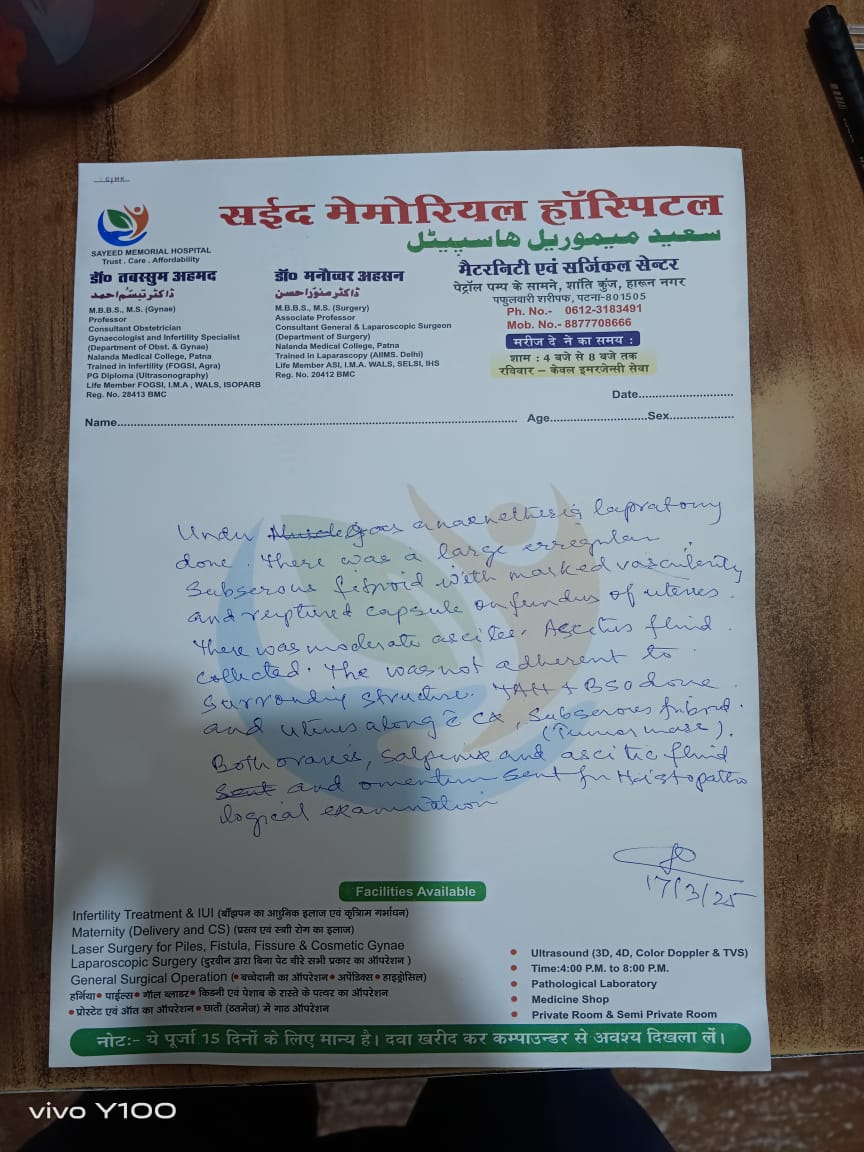 CIMK
सईद मेमोरियल हॉस्पिटल
سعید میموریل ہاسپیٹل
SAYEED MEMORIAL HOSPITAL
Trust . Care . Affordability
मैटरनिटी एवं सर्जिकल सेन्टर
पेट्रॉल पम्प के सामने, शांति कुंज, हारून नगर
फुलवारी शरीफ, पटना-801505
Ph. No.- 0612-3183491
Mob. No.- 8877708666
मरीज दे ने का समय :
शाम : 4 बजे से 8 बजे तक
रविवार – केवल इमरजेन्सी सेवा
डॉ० तबस्सुम अहमद
ڈاکٹر تبسّم احمد
M.B.B.S., M.S. (Gynae)
Professor
Consultant Obstetrician
Gynaecologist and Infertility Specialist
(Department of Obst. & Gynae)
Nalanda Medical College, Patna
Trained in Infertility (FOGSI, Agra)
PG Diploma (Ultrasonography)
Life Member FOGSI, I.M.A , WALS, ISOPARB
Reg. No. 28413 BMC
डॉ० मनौव्वर अहसन
ڈاکٹر منوّر احسن
M.B.B.S., M.S. (Surgery)
Associate Professor
Consultant General & Laparoscopic Surgeon
(Department of Surgery)
Nalanda Medical College, Patna
Trained in Laparascopy (AIIMS. Delhi)
Life Member ASI, I.M.A. WALS, SELSI, IHS
Reg. No. 20412 BMC
Date............................
Name.................................................. Age........................Sex.................
Under gas anaenethesia lapratomy
done. There was a large erregular
Subserous fibroid with marked vascularity
and reptured capsule on fundus of uterus.
There was moderate ascites. Ascitus fluid
collected. The was not adherent to
Surronding structure. TAH + BSO done
and uterus along c̄ CX, Subserous fibroid.
(Tumor mass).
Both ovaries, Salpinix and ascitic fluid
Sent and omentum sent for Histopatho
logical examination
17/3/25
Facilities Available
Infertility Treatment & IUI (बाँझपन का आधुनिक इलाज एवं कृत्रिम गर्भाधन)
Maternity (Delivery and CS) (प्रसव एवं स्त्री रोग का इलाज)
Laser Surgery for Piles, Fistula, Fissure & Cosmetic Gynae
Laparoscopic Surgery (दुरबीन द्वारा बिना पेट चीरे सभी प्रकार का ऑपरेशन )
General Surgical Operation (• बच्चेदानी का ऑपरेशन • अपेंडिक्स • हाइड्रोसिल)
हर्निया • पाईल्स • गॉल ब्लाडर • किडनी एवं पेशाब के रास्ते के पत्थर का ऑपरेशन
• प्रोस्टेट एवं आँत का ऑपरेशन • छाती (ब्रेस्ट) में गाठ ऑपरेशन
• Ultrasound (3D, 4D, Color Doppler & TVS)
• Time:4:00 P.M. to 8:00 P.M.
• Pathological Laboratory
• Medicine Shop
• Private Room & Semi Private Room
नोटः- ये पूर्जा 15 दिनों के लिए मान्य है। दवा खरीद कर कम्पाउन्डर से अवश्य दिखला लें।
vivo Y100